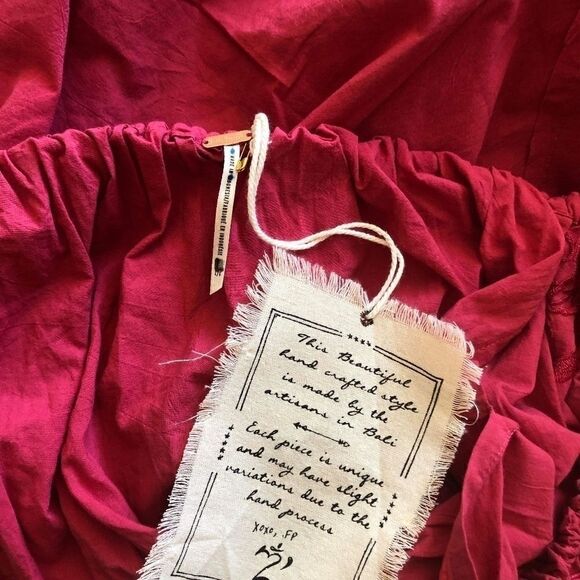 MADE IN
INDONESIA/FABRIQUÉ EN INDONÉSIE
This Beautiful
hand crafted style
is made by the
artisans in Bali
Each piece is unique
and may have slight
variations due to the
hand process
XOXO, FP